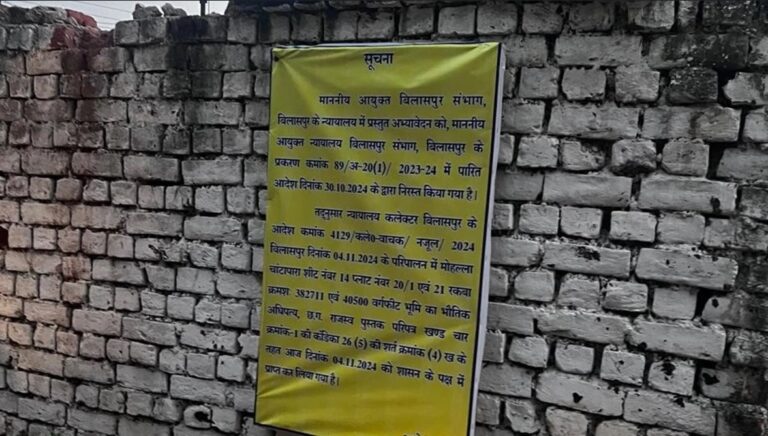 सूचना
माननीय आयुक्त बिलासपुर संभाग,
बिलासपुर के न्यायालय में प्रस्तुत अभ्यावेदन को, माननीय
आयुक्त न्यायालय बिलासपुर संभाग, बिलासपुर के
प्रकरण कमांक 89/अ-20(1)/ 2023-24 में पारित
आदेश दिनांक 30.10.2024 के द्वारा निरस्त किया गया है।
तद्नुसार न्यायालय कलेक्टर बिलासपुर के
आदेश कमांक 4129/कले0-वाचक/ नजूल/ 2024
बिलासपुर दिनांक 04.11.2024 के परिपालन में मोहल्ला
चांटापारा शीट नंबर 14 प्लाट नंबर 20/1 एवं 21 रकबा
क्रमशः 382711 एवं 40500 वर्गफीट भूमि का भौतिक
अधिपत्य, छ.ग. राजस्व पुस्तक परिपत्र खण्ड चार
क्रमांक-1 की कंडिका 26 (5) की शर्त क्रमांक (4) ख के
तहत आज दिनांक 04.11.2024 को शासन के पक्ष में
प्राप्त कर लिया गया है।